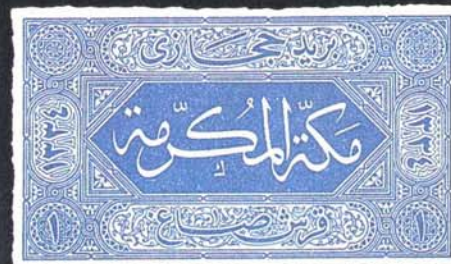 بريد حجازى
١٣٣٤ مكة المكرّمة ١٣٣٤
١ قرش صاغ ١